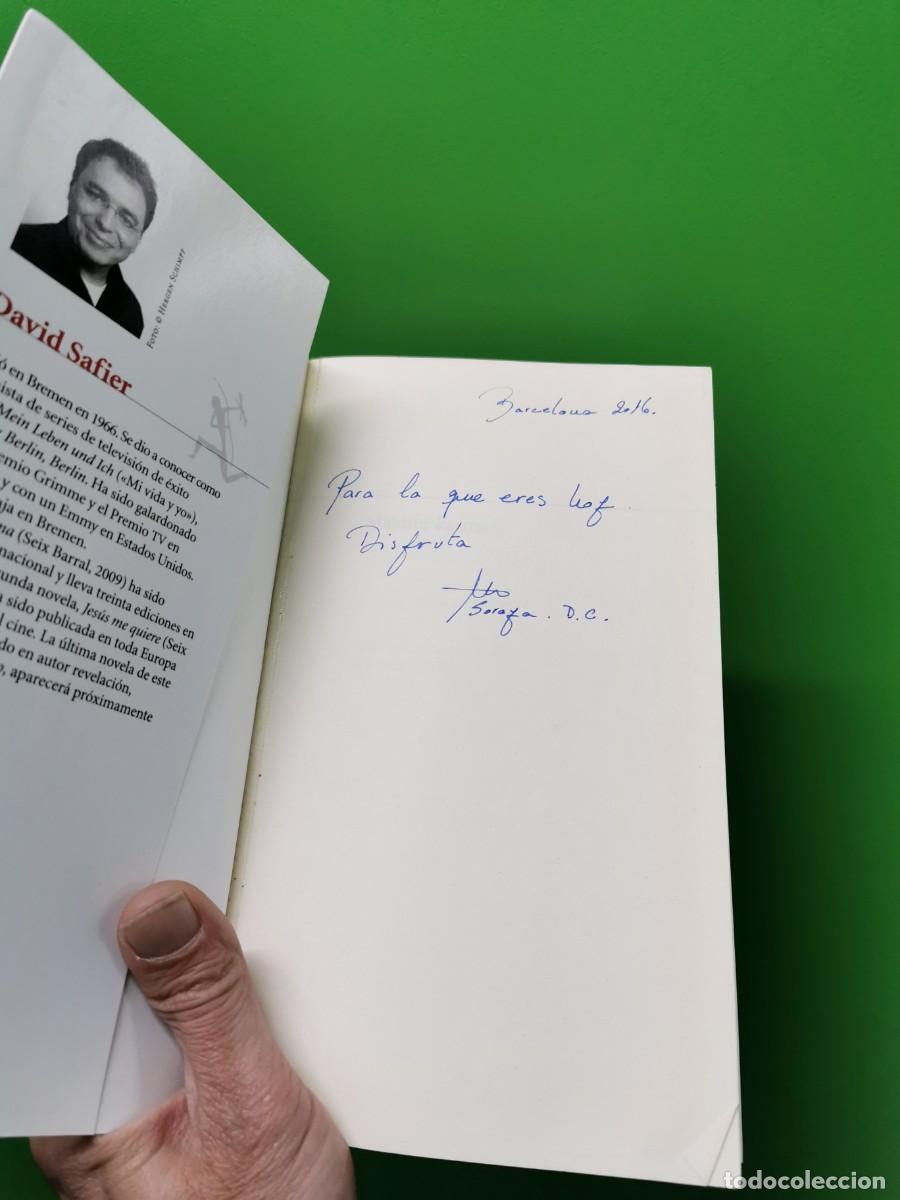 FOTO: © HERGEN SCHIMPF
David Safier
ó en Bremen en 1966. Se dio a conocer como
ista de series de televisión de éxito
Mein Leben und Ich («Mi vida y yo»),
Berlin, Berlin. Ha sido galardonado
emio Grimme y el Premio TV en
y con un Emmy en Estados Unidos.
ja en Bremen.
(Seix Barral, 2009) ha sido
nacional y lleva treinta ediciones en
unda novela, Jesús me quiere (Seix
sido publicada en toda Europa
l cine. La última novela de este
do en autor revelación,
, aparecerá próximamente
Barcelona 2016.
Para la que eres hoy.
Disfruta
Soraya. D.C.
todocoleccion